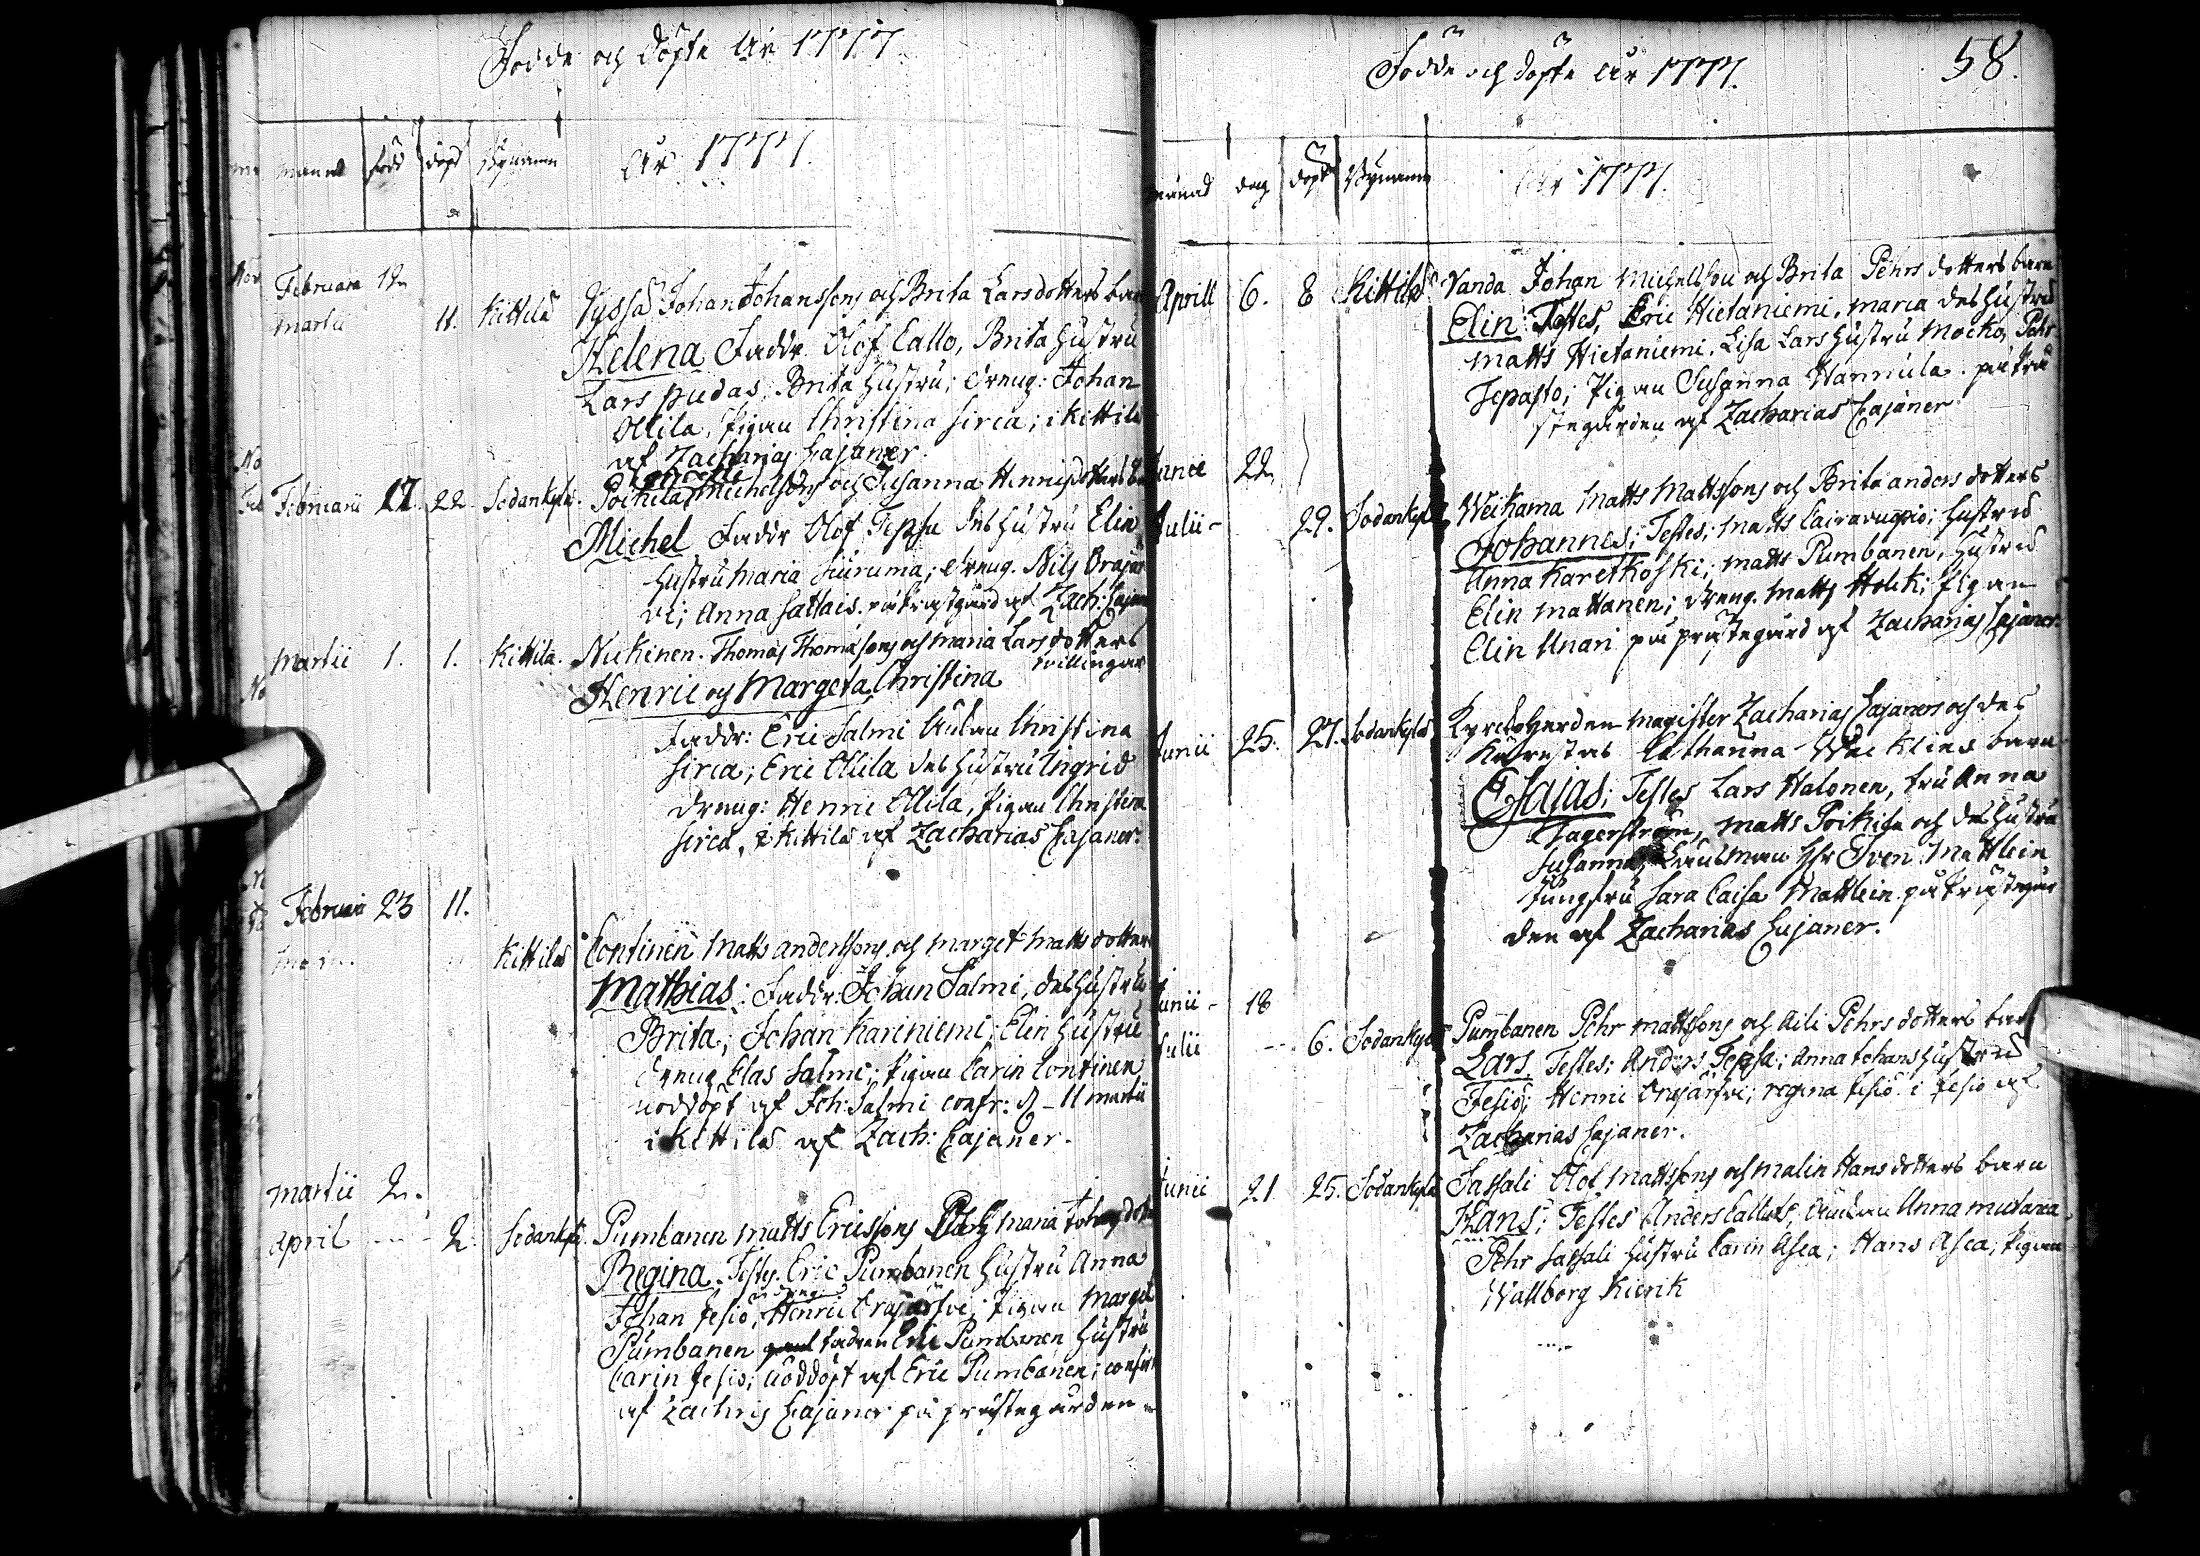 Födde och döpte År 1777.
månad född döpt Bynamn År 1777.
Februarii 12
martii 11. Kittilä Vyssä Johan Johanssons och Brita Larsdotters barn
Helena Faddr. Olof Callo, Brita Hustru
Lars pudas, Brita Hustru; dreng: Johan
Ollila, Pigan Christina Sirca; i Kittilä
af Zacharias Cajaner.
Februarii 17. 22. Sodankylä. Poikela Michelsons och Susanna Henricsdotters
Michel Faddr Olof Tepsa des Hustru Elin
Hustru Maria Siuruma; dreng. Nils Orajär
vi; Anna Sattais. på Prästgård af Zach: Cajan
Martii 1. 1. Kittila. Nickinen. Thomas Thomassons och Maria Larsdotters
tvillingar
Henric och Margeta Christina
Faddr: Eric Salmi Änkan Christina
Sirca; Eric Ollila des Hustru Ingrid
dreng: Henric Ollila, Pigan Christina
Sirca, i Kittilä af Zacharias Cajaner.
Februarii 23 11.
Kittilä Contineń Matts anderssons och marget matts dotters
Mathias: Faddr: Johan Salmi, des Hustru
Brita; Johan Kariniemi; Elin Hustru
dreng Elas Salmi; Pigan Carin Continen
nöddöpt af Joh: Salmi confr: d – 11 martii
i Kittilä af Zach: Cajaner.
martii 2.
april 2 Sodankylä. Pumbanen matts Ericssons och maria Johansdott
Regina. Testes. Eric Pumbanen Hustru Anna
Johan Jesiö, Henric Orajärfvi; Pigan Marget
Pumbanen fadren Eric Pumbanen Hustru
Carin Jesiö; nöddöpt af Eric Pumbanen; confir
af Zachris Cajaner på prästegården
Födde och döpte År 1777. 58.
månad dag döpt Bynamn År 1777.
Aprill 6. 8 Kittilä Vanda Johan Michellson och Brita Pehrs dotters barn
Elin: Testes, Eric Hietaniemi, maria des Hustru
matts Hietaniemi, Lisa Lars Hustru Mocko, Pehr
Jepasto; Pigan Susanna Hannula. på Prä
stegården af Zacharias Cajaner
Junii 22
Julii - 29. Sodankylä Weikama Matts Mattssons och Brita anders dotters
Johannes; Testes; matts Cairavuopio; hustru
Anna Karetkoski; matts Pumbanen, Hustru
Elin mattanen; dreng. matts Houk; Pigan
Elin Unari på prästegård af Zacharias Cajaner.
Junii 25. 27. Sodankylä Kyrckoherden magister Zacharias Cajaners och des
Kärestas Catharina Wacklins barn
Esaias; Testes Lars Halonen, fru Anna
Fagerström, matts Poikila och des Hustru
Susanna, Länsman Hr Sven Mattlein
Jungfru Sara Caisa Mattlein. på Prästegår
den af Zacharias Cajaner.
Junii - 18
Julii 6. Sodankylä Pumbanen Pehr mattssons och Aili Pehrs dotters barn
Lars. Testes; Anders Tepsa; Anna Johans Hustru
Jesiö; Henric Orajärfvi; regina Jesiö. i Jesiö af
Zacharias Cajaner.
Junii 21 25. Sodankylä Sassali Olof mattssons och malin Hans dotters barn
Hans; Testes Anders Callus, Änckan Anna mutanea
Pehr Sassali Hustru Carin Asca; Hans Asca; Pigan
Wallborg Kierik